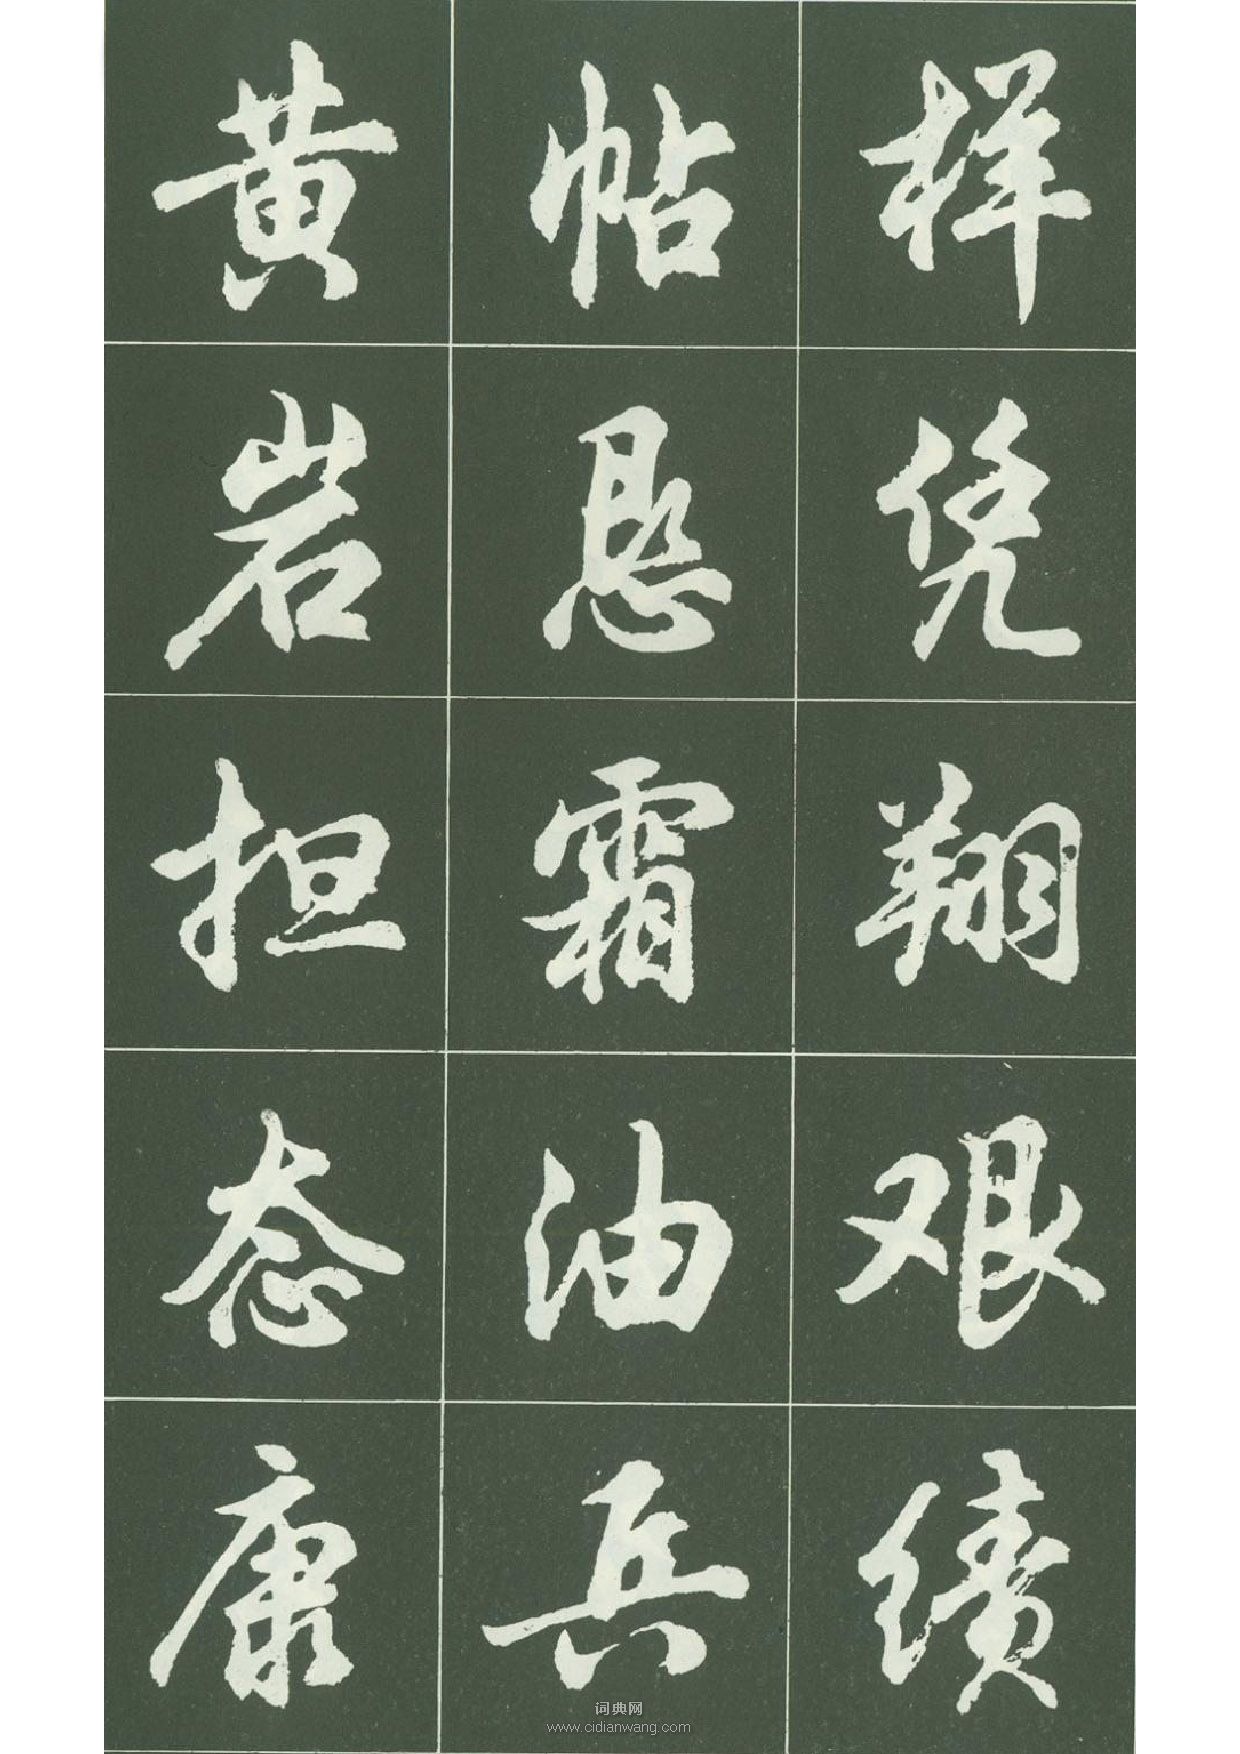 样凭翔艰绩
帖悬霜油兵
黄岩担态康
词典网
www.cidianwang.com